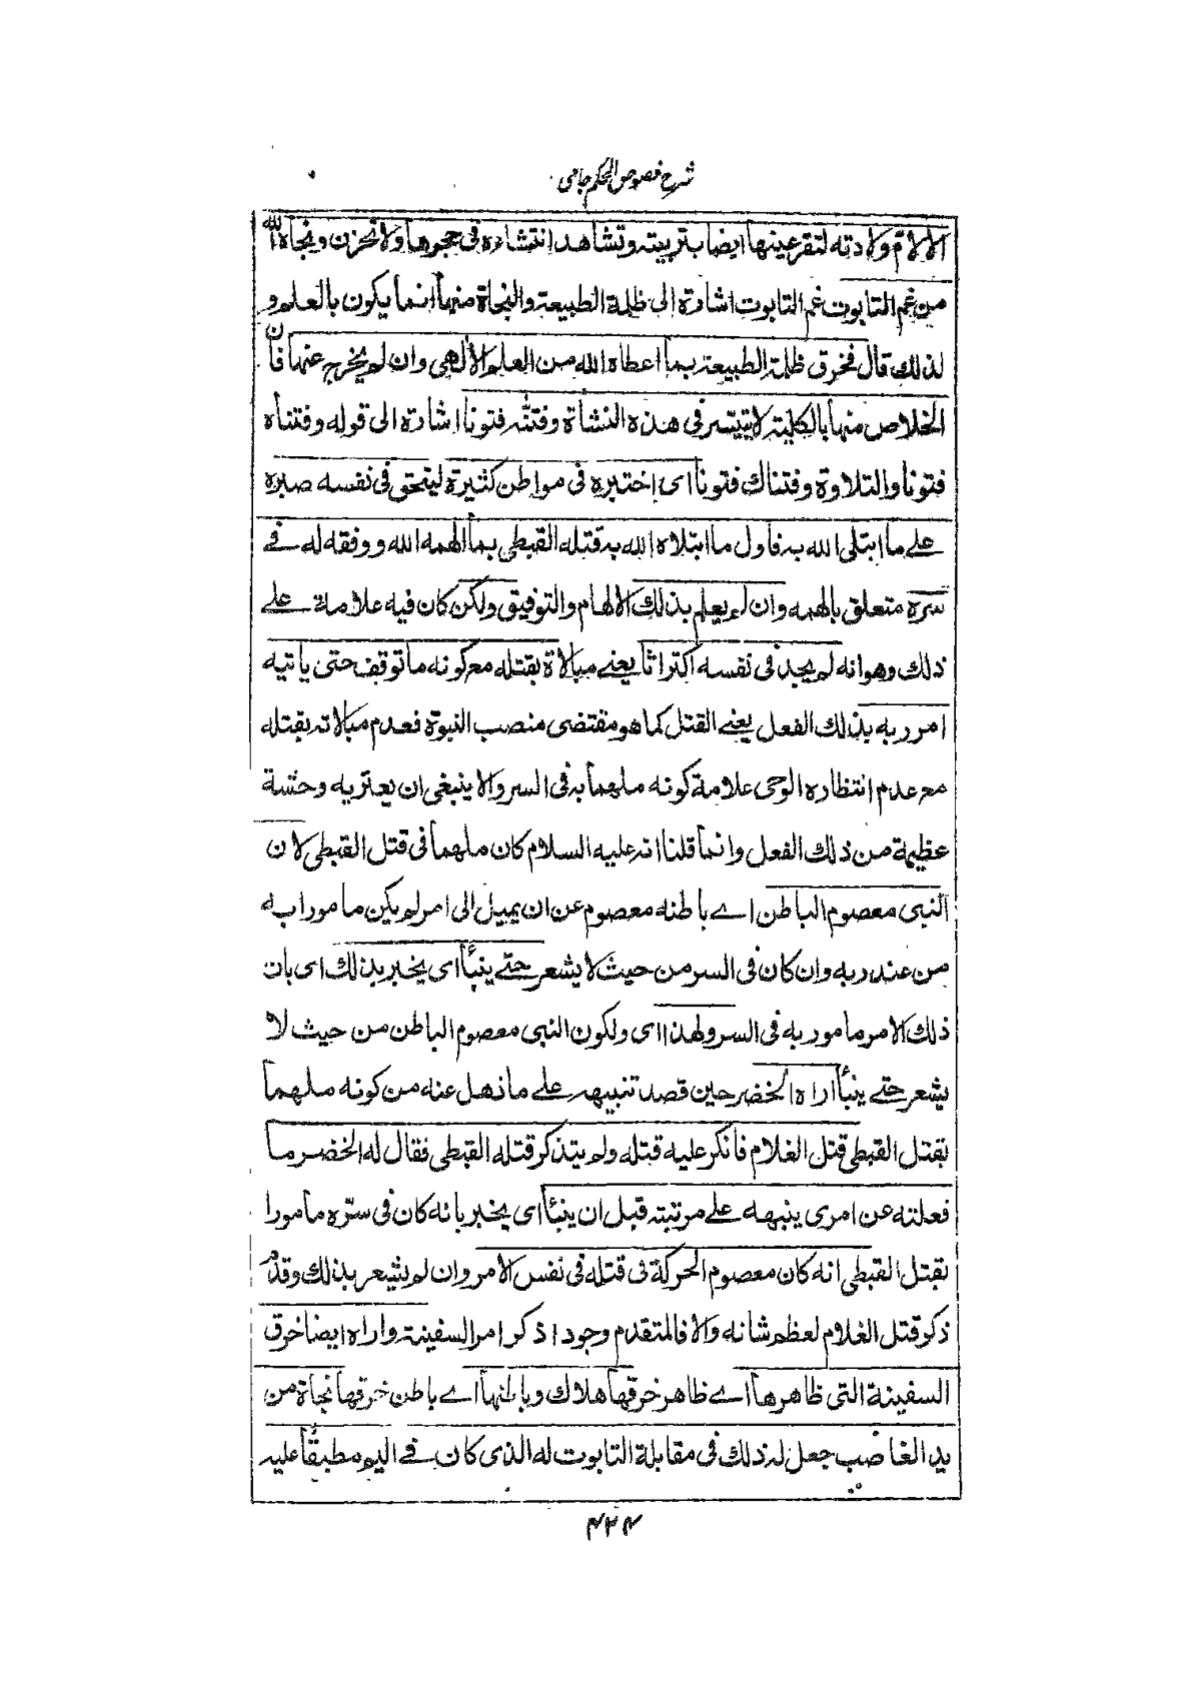 شرح فصوص الحكم جامى
الا لام ولادته لتقر عينها ايضا بتربيته وتشاهد انتشاءه فى حجرها ولا تحزن ونجاه الله
من غم التابوت غم التابوت اشارة الى ظلمة الطبيعة والنجاة منها انما يكون بالعلم و
لذلك قال فخرق ظلمة الطبيعة بما اعطاه الله من العلم الالهى وان لم يخرج عنها فان
الخلاص منها بالكلية لا يتيسر فى هذه النشاة وفتنه فتونا اشارة الى قوله وفتناه
فتونا والتلاوة وفتناك فتونا اى اختبره فى مواطن كثيرة ليتحقق فى نفسه صبره
على ما ابتلى الله به فاول ما ابتلاه الله به قتله القبطى بما الهمه الله ووفقه له فى
سره متعلق بالهمه وان لم يعلم بذلك الالهام والتوفيق ولكن كان فيه علامة على
ذلك وهو انه لم يجد فى نفسه اكتراثا يعنى مبالاة بقتله مع كونه ما توقف حتى ياتيه
امر ربه بذلك الفعل يعنى القتل كما هو مقتضى منصب النبوة فعدم مبالاته بقتله
مع عدم انتظاره الوحى علامة كونه ملهما به فى السر والا ينبغى ان يعتريه وحشة
عظيمة من ذلك الفعل وانما قلنا انه عليه السلام كان ملهما فى قتل القبطى لان
النبى معصوم الباطن اى باطنه معصوم عن ان يميل الى امر لم يكن مامورا به
من عند ربه وان كان فى السر من حيث لا يشعر حتى ينبأ اى يخبر بذلك اى بان
ذلك الامر مامور به فى السر ولهذا اى ولكون النبى معصوم الباطن من حيث لا
يشعر حتى ينبأ اراه الخضر حين قصد تنبيهه على ما ذهل عنه من كونه ملهما
بقتل القبطى قتل الغلام فانكر عليه قتله ولم يتذكر قتله القبطى فقال له الخضر ما
فعلته عن امرى ينبهه على مرتبته قبل ان ينبأ اى يخبر بانه كان فى سره مامورا
بقتل القبطى انه كان معصوم الحركة فى قتله فى نفس الامر وان لم يشعر بذلك وقدم
ذكر قتل الغلام لعظم شانه والا فالمتقدم وجودا ذكر امر السفينة واراه ايضا خرق
السفينة التى ظاهرها اى ظاهر خرقها هلاك وباطنها اى باطن خرقها نجاة من
يد الغاصب جعل له ذلك فى مقابلة التابوت له الذى كان فى اليم مطبقا عليه
۴۲۴